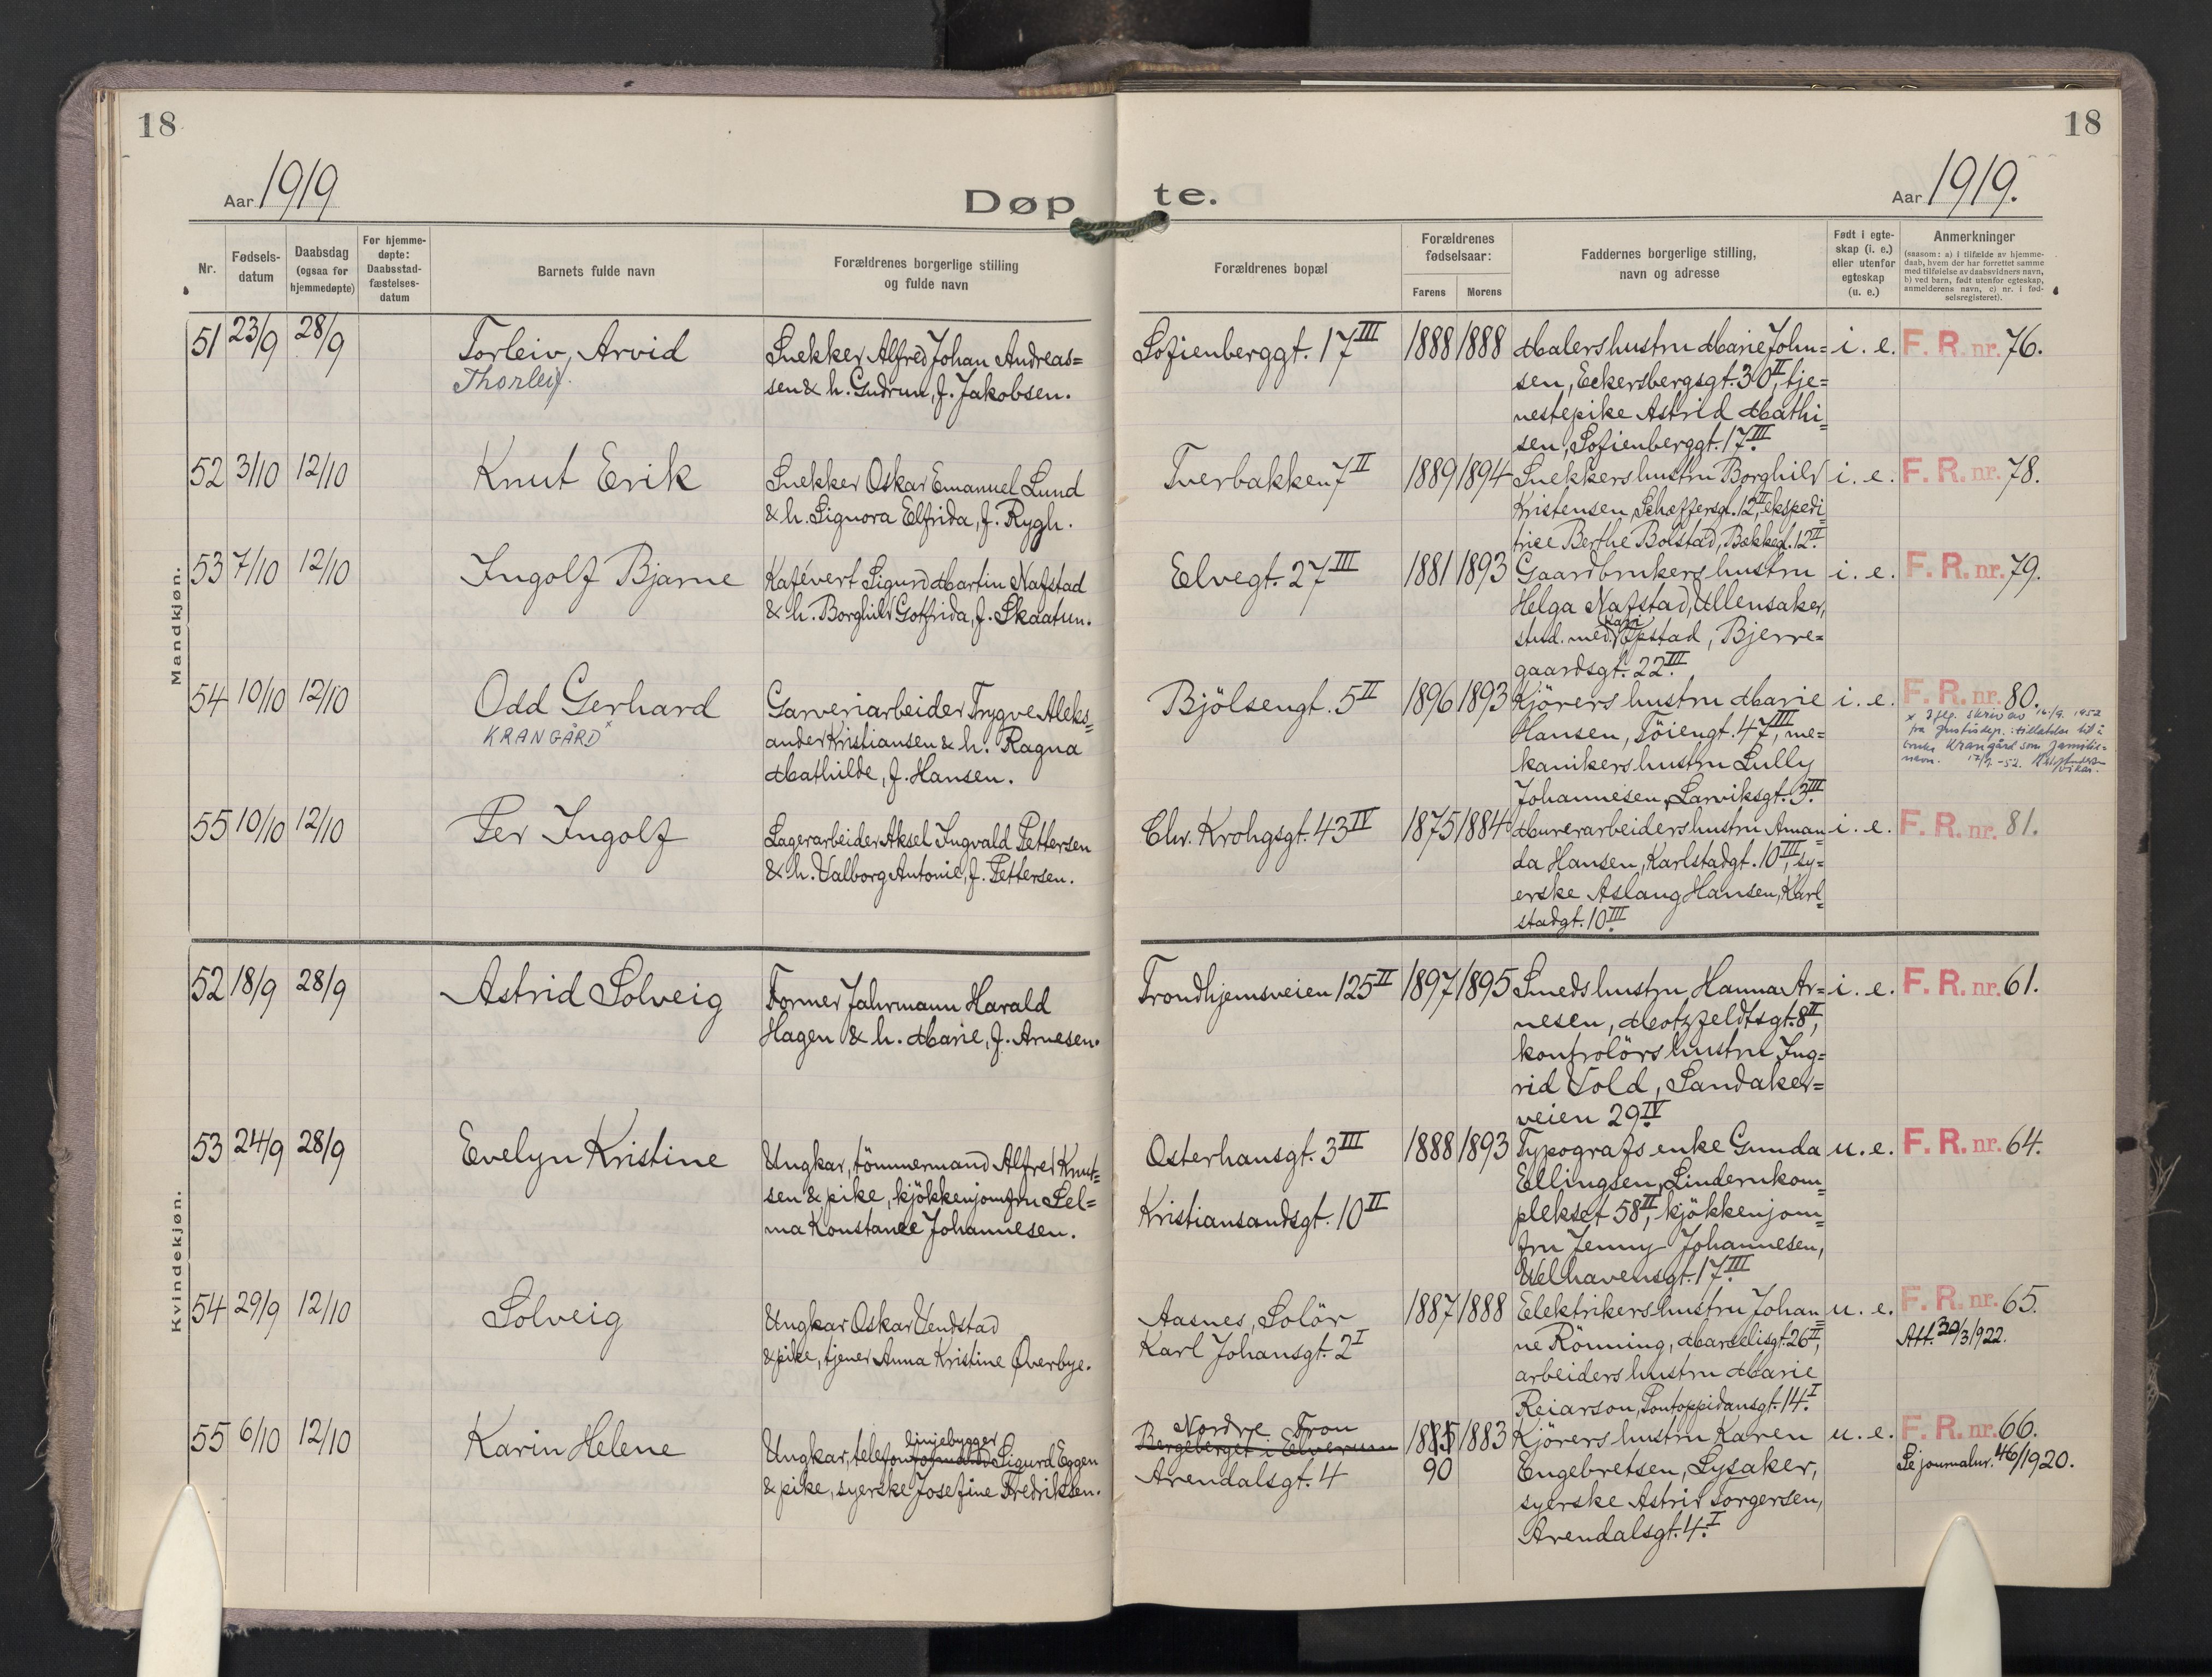 18
Aar 1919
Døp
Nr.
Fødsels-
datum
Daabsdag
(ogsaa for
hjemmedøpte)
For hjemme-
døpte:
Daabsstad-
fæstelses-
datum
Barnets fulde navn
Forældrenes borgerlige stilling
og fulde navn
Mandkjøn.
51 23/9 28/9 Torleiv, Arvid
Thorleif.
Snekker Alfred Johan Andreas=
sen & h. Gudrun, f. Jakobsen.
52 3/10 12/10 Knut Erik
Snekker Oskar Emanuel Lund
& h. Signora Elfrida, f. Rygh.
53 7/10 12/10 Ingolf Bjarne
Kafévert Sigurd Martin Nafstad
& h. Borghild Gotfrida, f. Skaatun.
54 10/10 12/10 Odd Gerhard
KRANGÅRD x
Garveriarbeider Trygve Aleks=
ander Kristiansen & h. Ragna
Mathilde, f. Hansen.
55 10/10 12/10 Per Ingolf
Lagerarbeider Aksel Ingvald Pettersen
& h. Valborg Antonie, f. Pettersen.
Kvindekjøn.
52 18/9 28/9 Astrid Solveig
Former Jahrmann Harald
Hagen & h. Marie, f. Arnesen.
53 24/9 28/9 Evelyn Kristine
Ungkar, tömmermand Alfred Knut=
sen & pike, kjökkenjomfru Sel=
ma Konstance Johannesen.
54 29/9 12/10 Solveig
Ungkar Oskar Vendstad
& pike, tjener Anna Kristine Øverbye.
55 6/10 12/10 Karin Helene
linjebygger
Ungkar, telefonformand Sigurd Eggen
& pike, syerske Josefine Fredriksen.
18
te.
Aar 1919.
Forældrenes bopæl
Forældrenes
fødselsaar:
Farens
Morens
Faddernes borgerlige stilling,
navn og adresse
Født i egte-
skap (i. e.)
eller utenfor
egteskap
(u. e.)
Anmerkninger
(saasom: a) i tilfælde av hjemme-
daab, hvem der har forrettet samme
med tilføielse av daabsvidners navn,
b) ved barn, født utenfor egteskap,
anmelderens navn, c) nr. i fød-
selsregisteret).
Sofienberggt. 17 III 1888 1888 Malers hustru Marie John= i. e. F. R. nr. 76.
sen, Eckersbergsgt. 30 II, tje=
nestepike Astrid Mathi=
sen, Sofienberggt. 17 III
Tverbakken 7 II 1889 1894 Snekkers hustru Borghild i. e. F. R. nr. 78.
Kristensen, Schæffersgt. 12 II, ekspedi=
trice Berthe Bolstad, Bækkegt. 12 II
Elvegt. 27 III 1881 1893 Gaardbrukers hustru i. e. F. R. nr. 79.
Helga Nafstad, Ullensaker,
stud. med. Opstad, Bjerre=
gaardsgt. 22 III
Bjölsengt. 5 II 1896 1893 Kjörers hustru Marie i. e. F. R. nr. 80.
Hansen, Töiengt. 47 III, me=
kanikers hustru Lully
Johannesen, Larviksgt. 3 III
x Iflg. skriv av 16/9. 1952
fra Justisdep.: tillatelse til å
bruke Krangård som familie=
navn. 17/9-52.
Chr. Krohgsgt. 43 IV 1875 1884 Murerarbeiders hustru Aman= i. e. F. R. nr. 81.
da Hansen, Karlstadgt. 10 III, sy=
erske Aslaug Hansen, Karl=
stadgt. 10 III
Trondhjemsveien 125 II 1897 1895 Smeds hustru Hanna Ar= i. e. F. R. nr. 61.
nesen, Motzfeldtsgt. 8 II,
kontrolörs hustru Ing=
rid Vold, Sandaker=
veien 29 IV
Osterhausgt. 3 III 1888 1893 Typografs enke Gunda u. e. F. R. nr. 64.
Ellingsen, Lindernkom=
Kristiansandsgt. 10 II plekset 58 II, kjökkenjom=
fru Jenny Johannesen,
Welhavensgt. 17 III
Aasnes, Solör 1887 1888 Elektrikers hustru Johan= u. e. F. R. nr. 65.
Karl Johansgt. 2 I ne Rönning, Marselisgt. 26 II, Att. 20/3 1922.
arbeiders hustru Marie
Reiarson, Pontoppidansgt. 14 I
Nordre Fron
Bergeberget i Elverum 1885 1883 Kjörers hustru Karen u. e. F. R. nr. 66.
Arendalsgt. 4 90 Engebretsen, Lysaker, Se journalnr. 46/1920.
syerske Astrid Torgersen,
Arendalsgt. 4 I